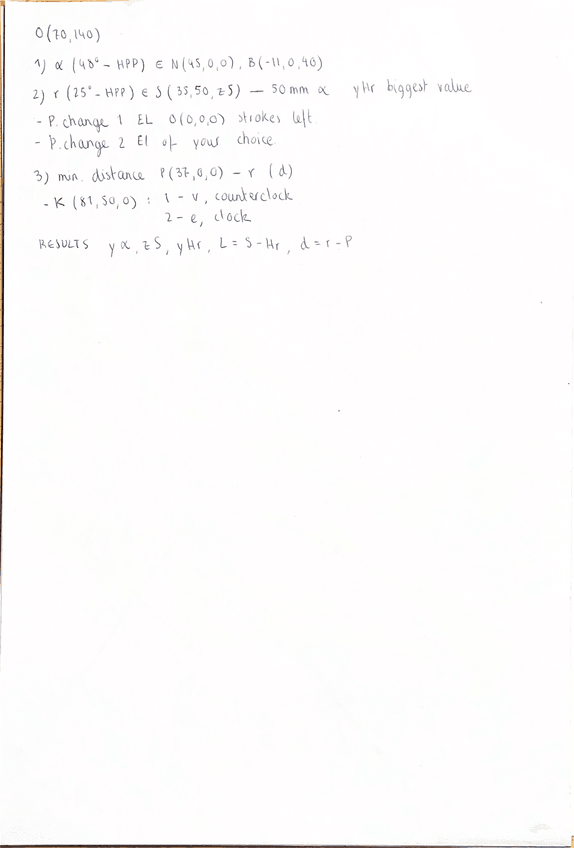 O(70,140)
1) α (48° - HPP) ∈ N(45,0,0), B(-11,0,40)
2) r (25° - HPP) ∈ S(35,50,zS) — 50mm α yHr biggest value
- P. change 1 EL O(0,0,0) strokes left
- P. change 2 El of your choice
3) min. distance P(37,0,0) - r (d)
- K (81,50,0) : 1 - v, counterclock
2 - e, clock
RESULTS yα, zS, yHr, L = S-Hr, d = r-P